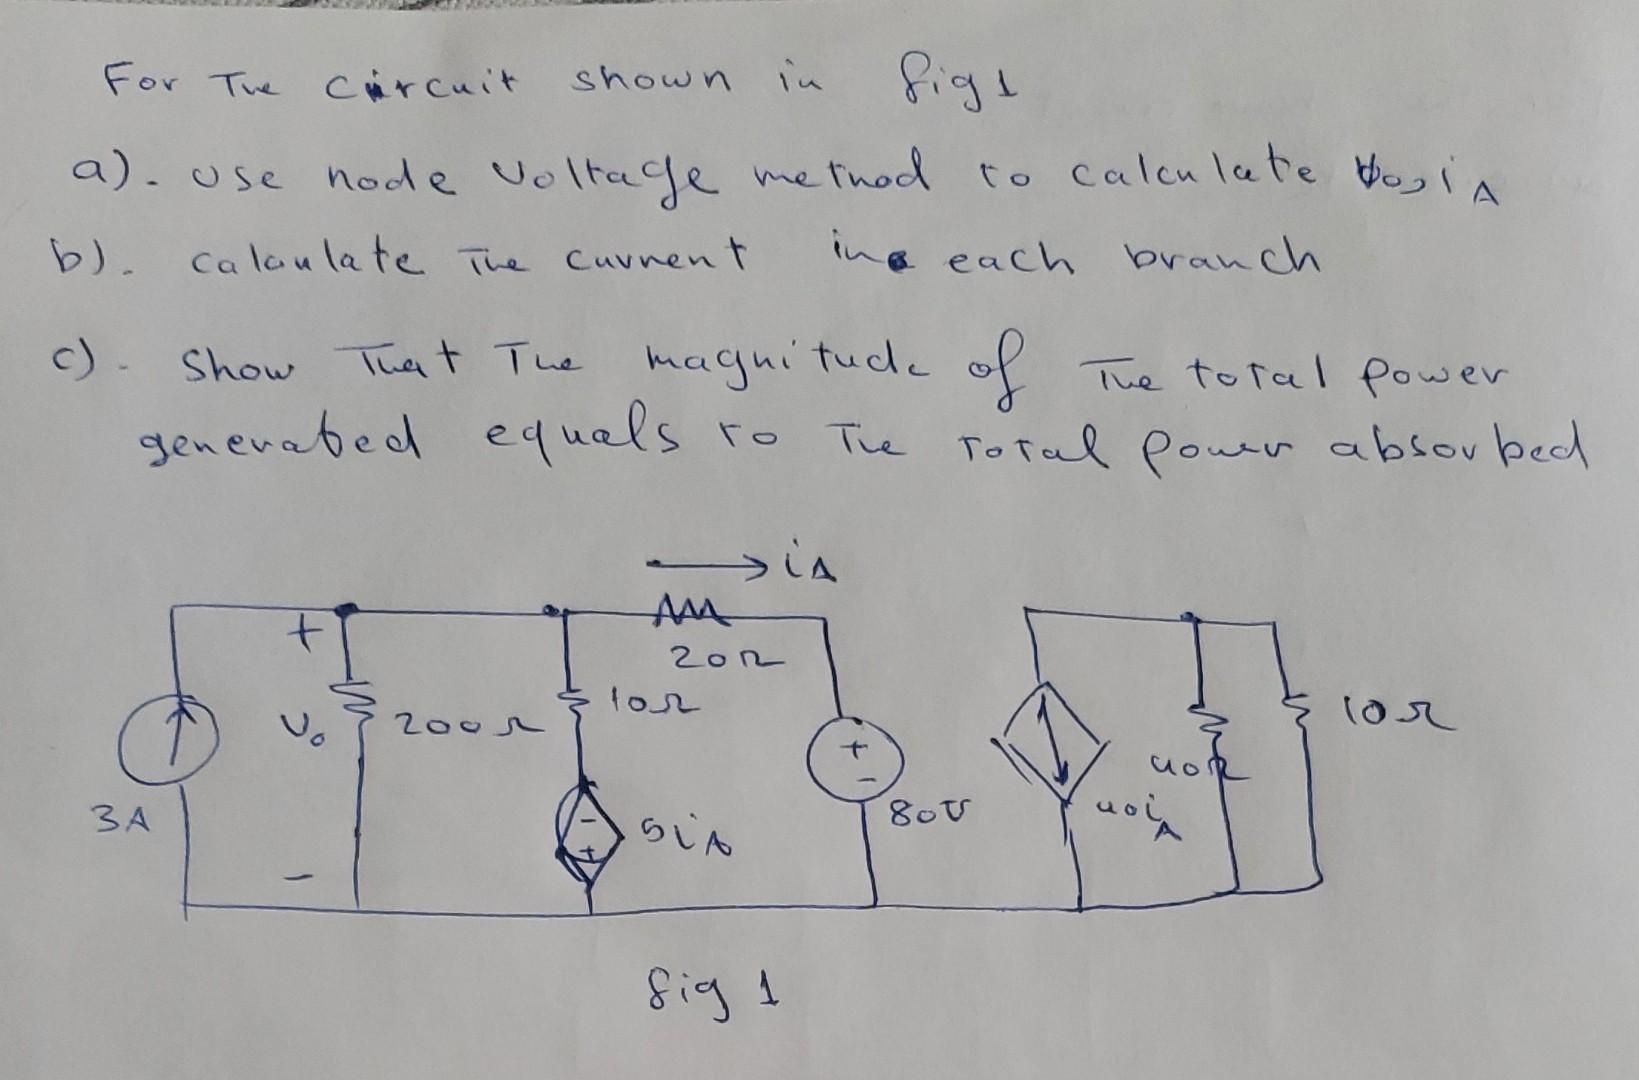 For The Circuit shown in fig 1
a). use node Voltage method to calculate Vo, iA
b). calculate The current in each branch
c). Show That The magnitude of The total power
generated equals to The Total power absorbed
iA
+
20Ω
Vo
200Ω
10Ω
+
-
80V
10Ω
40Ω
3A
-
+
5iA
40iA
-
fig 1